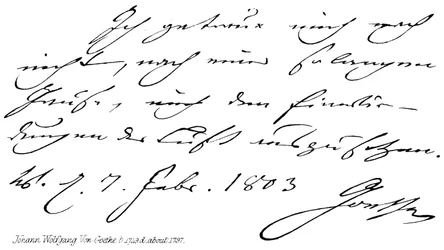 Ich getraue mich noch
nicht, nach einer so langen
Pause, mich den Einwir-
kungen der Luft auszusetzen.
W. d. 7. Febr. 1803 Goethe
Johann Wolfgang Von Goethe b. 1749 d. about 1797.